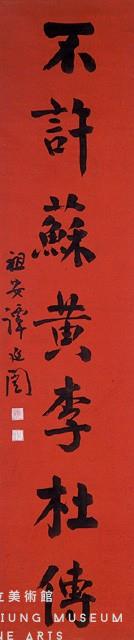 不許蘇黃李杜傳
祖安譚延闓
立美術館
SIUNG MUSEUM
NE ARTS